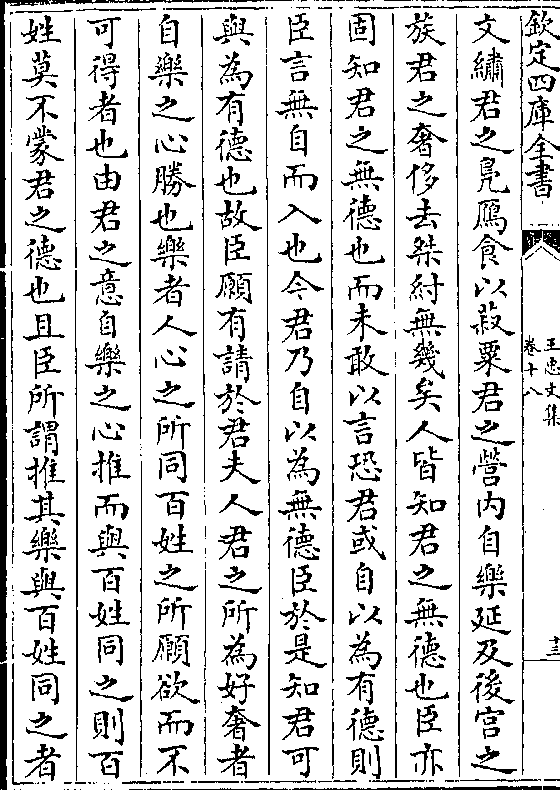 欽定四庫全書
王忠文集
卷十八
文繡君之鳧鴈食以菽粟君之營内自樂延及後宫之
族君之奢侈去桀紂無幾矣人皆知君之無德也臣亦
固知君之無德也而未敢以言恐君或自以為有德則
臣言無自而入也今君乃自以為無德臣於是知君可
與為有德也故臣願有請於君夫人君之所為好奢者
自樂之心勝也樂者人心之所同百姓之所願欲而不
可得者也由君之意自樂之心推而與百姓同之則百
姓莫不蒙君之德也且臣所謂推其樂與百姓同之者